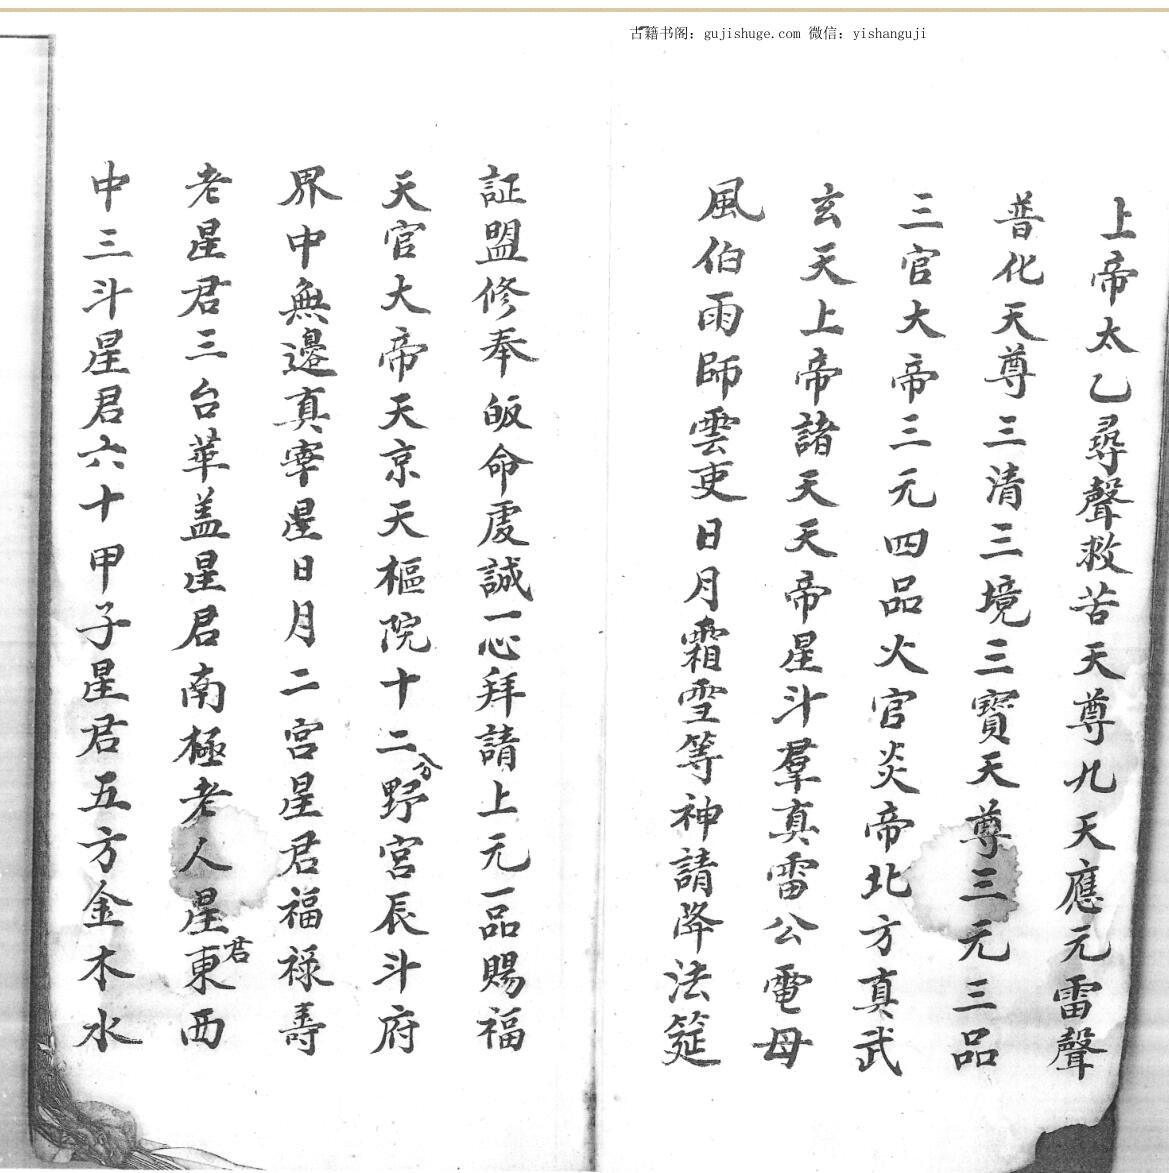 古籍书阁：gujishuge.com 微信：yishanguji
上帝太乙尋聲救苦天尊九天應元雷聲
普化天尊三清三境三寳天尊三元三品
三官大帝三元四品火官炎帝北方真武
玄天上帝諸天天帝星斗羣真雷公電母
風伯雨師雲吏日月霜雪等神請降法筵
証盟修奉皈命虔誠一心拜請上元一品賜福
天官大帝天京天樞院十二分野宮辰斗府
界中無邊真宰星日月二宮星君福禄壽
老星君三台華盖星君南極老人星君東西
中三斗星君六十甲子星君五方金木水